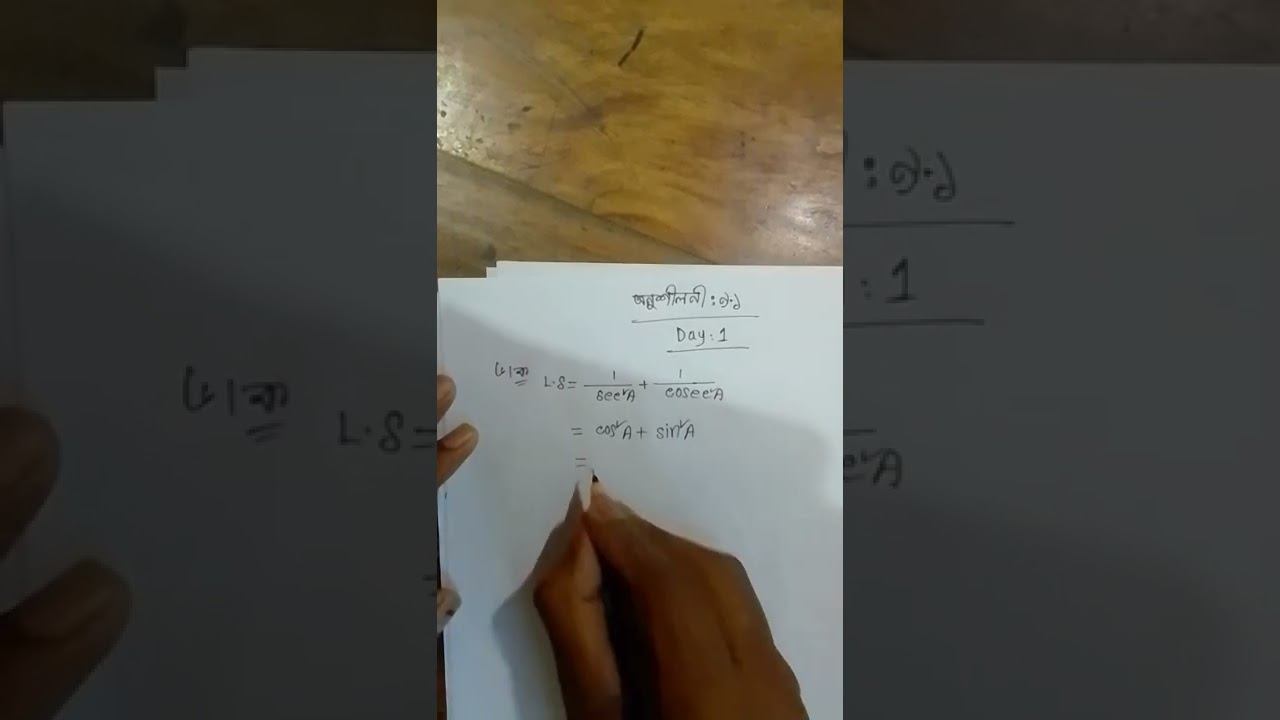 অনুশীলনী : ৯.১
Day : 1
৬।ক L.S = 1/sec²A + 1/cosec²A
= cos²A + sin²A
=